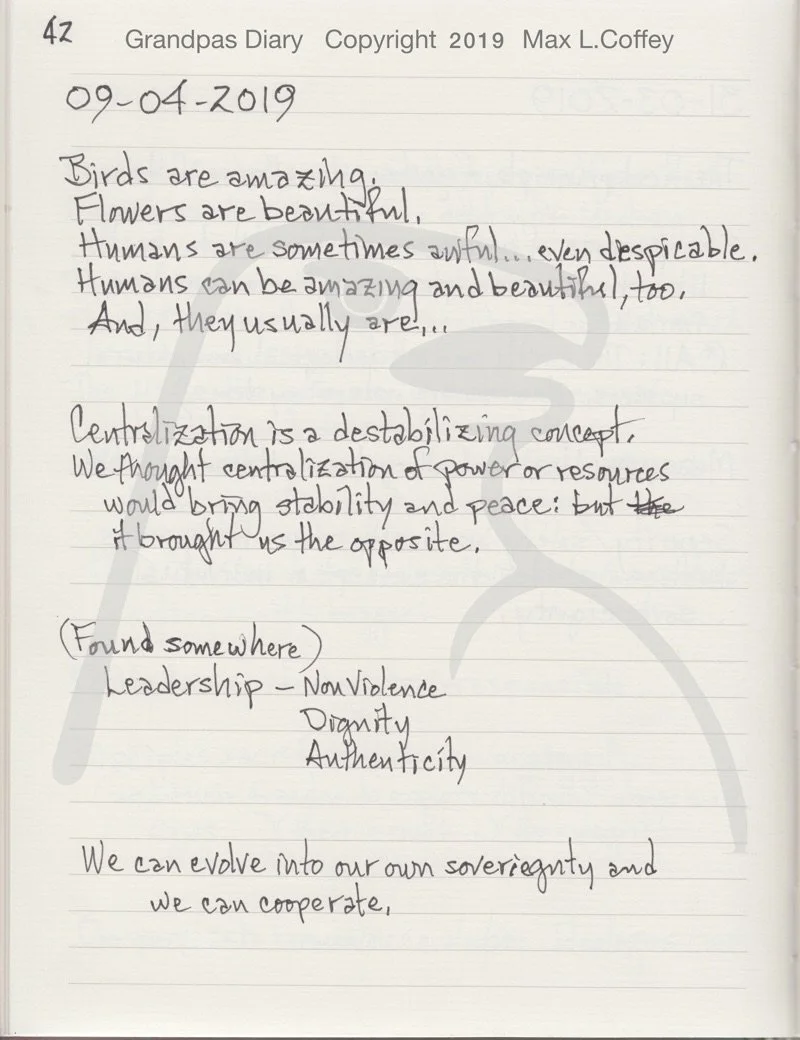 42
Grandpas Diary Copyright 2019 Max L.Coffey
09-04-2019
Birds are amazing.
Flowers are beautiful.
Humans are sometimes awful... even despicable.
Humans can be amazing and beautiful, too.
And, they usually are...
Centralization is a destabilizing concept.
We thought centralization of power or resources
would bring stability and peace: but the
it brought us the opposite.
(Found somewhere)
Leadership – NonViolence
Dignity
Authenticity
We can evolve into our own soveriegnty and
we can cooperate.